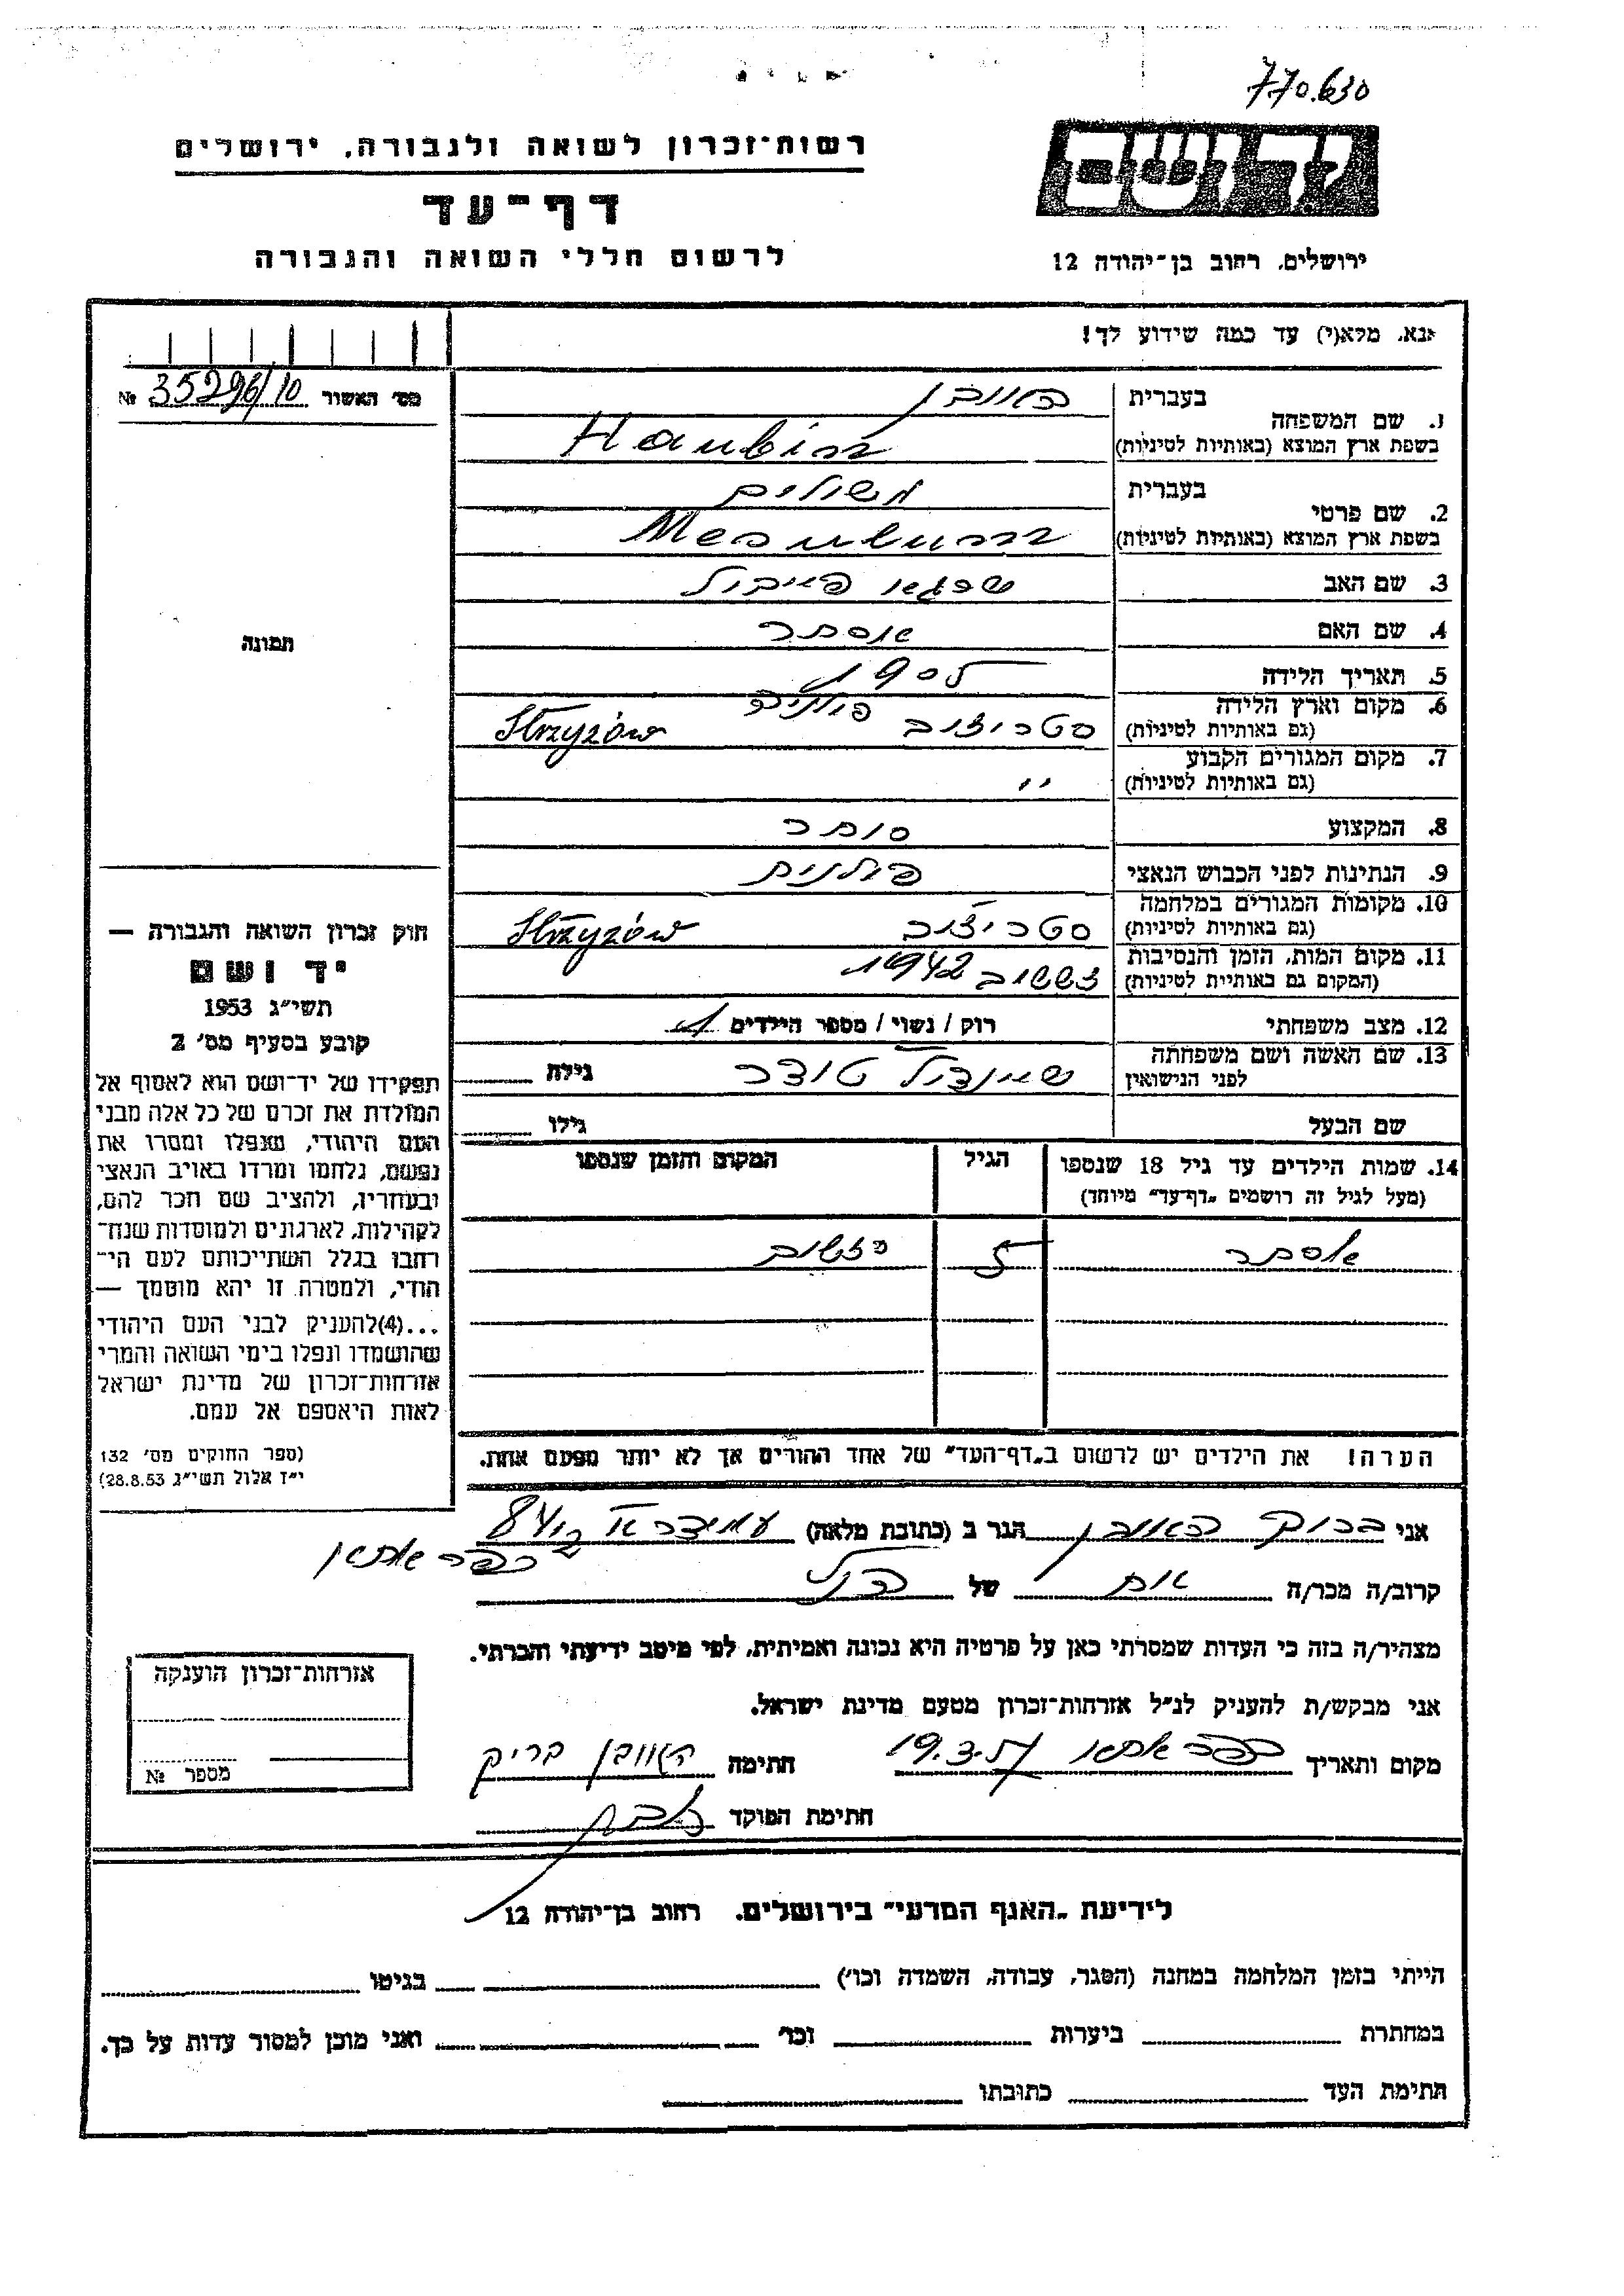 770.630
רשות־זכרון לשואה ולגבורה, ירושלים
דף־עד
לרשום חללי השואה והגבורה
יד ושם
ירושלים, רחוב בן־יהודה 12
אנא, מלא(י) עד כמה שידוע לך!
מס׳ האשור 35296/10 №
1. שם המשפחה
בעברית האובן
בשפת ארץ המוצא (באותיות לטיניות) Haubin
2. שם פרטי
בעברית משולם
בשפת ארץ המוצא (באותיות לטיניות)
3. שם האב שרגא פייבול
4. שם האם אסתר
5. תאריך הלידה
6. מקום וארץ הלידה
(גם באותיות לטיניות) סטריזוב פולניה Strzyzów
7. מקום המגורים הקבוע
(גם באותיות לטיניות) ״
8. המקצוע סוחר
9. הנתינות לפני הכבוש הנאצי פולנית
10. מקומות המגורים במלחמה
(גם באותיות לטיניות) סטריזוב Strzyzów
11. מקום המות, הזמן והנסיבות
(המקום גם באותיית לטיניות) 1942
12. מצב משפחתי רוק / נשוי / מספר הילדים 1
13. שם האשה ושם משפחתה
לפני הנישואין שיינדל גילה
שם הבעל גילו
14. שמות הילדים עד גיל 18 שנספו
(מעל לגיל זה רושמים „דף־עד״ מיוחד)
הגיל
המקום והזמן שנספו
אסתר 5
הערה! את הילדים יש לרשום ב„דף־העד״ של אחד ההורים אך לא יותר מפעם אחת.
תמונה
חוק זכרון השואה והגבורה —
יד ושם
תשי״ג 1953
קובע בסעיף מס׳ 2
תפקידו של יד־ושם הוא לאסוף אל
המולדת את זכרם של כל אלה מבני
העם היהודי, שנפלו ומסרו את
נפשם, נלחמו ומרדו באויב הנאצי
ובעוזריו, ולהציב שם וזכר להם,
לקהילות, לארגונים ולמוסדות שנח־
רבו בגלל השתייכותם לעם הי־
הודי, ולמטרה זו יהא מוסמך —
...(4)להעניק לבני העם היהודי
שהושמדו ונפלו בימי השואה והמרי
אזרחות־זכרון של מדינת ישראל
לאות היאספם אל עמם.
(ספר החוקים מס׳ 132
י״ז אלול תשי״ג 28.8.53)
אני ברוך האובן הגר ב (כתובת מלאה) עמידר
כפר אתא
קרוב/ה מכר/ה אח של הנ״ל
מצהיר/ה בזה כי העדות שמסרתי כאן על פרטיה היא נכונה ואמיתית, לפי מיטב ידיעתי והכרתי.
אני מבקש/ת להעניק לנ״ל אזרחות־זכרון מטעם מדינת ישראל.
מקום ותאריך כפר אתא 19.3.57 חתימה האובן ברוך
חתימת הפוקד
אזרחות־זכרון הוענקה
מספר №
לידיעת „האגף המדעי״ בירושלים. רחוב בן־יהודה 12
הייתי בזמן המלחמה במחנה (הסגר, עבודה, השמדה וכו׳) בגיטו
במחתרת ביערות וכו׳ ואני מוכן למסור עדות על כך.
חתימת העד כתובתו